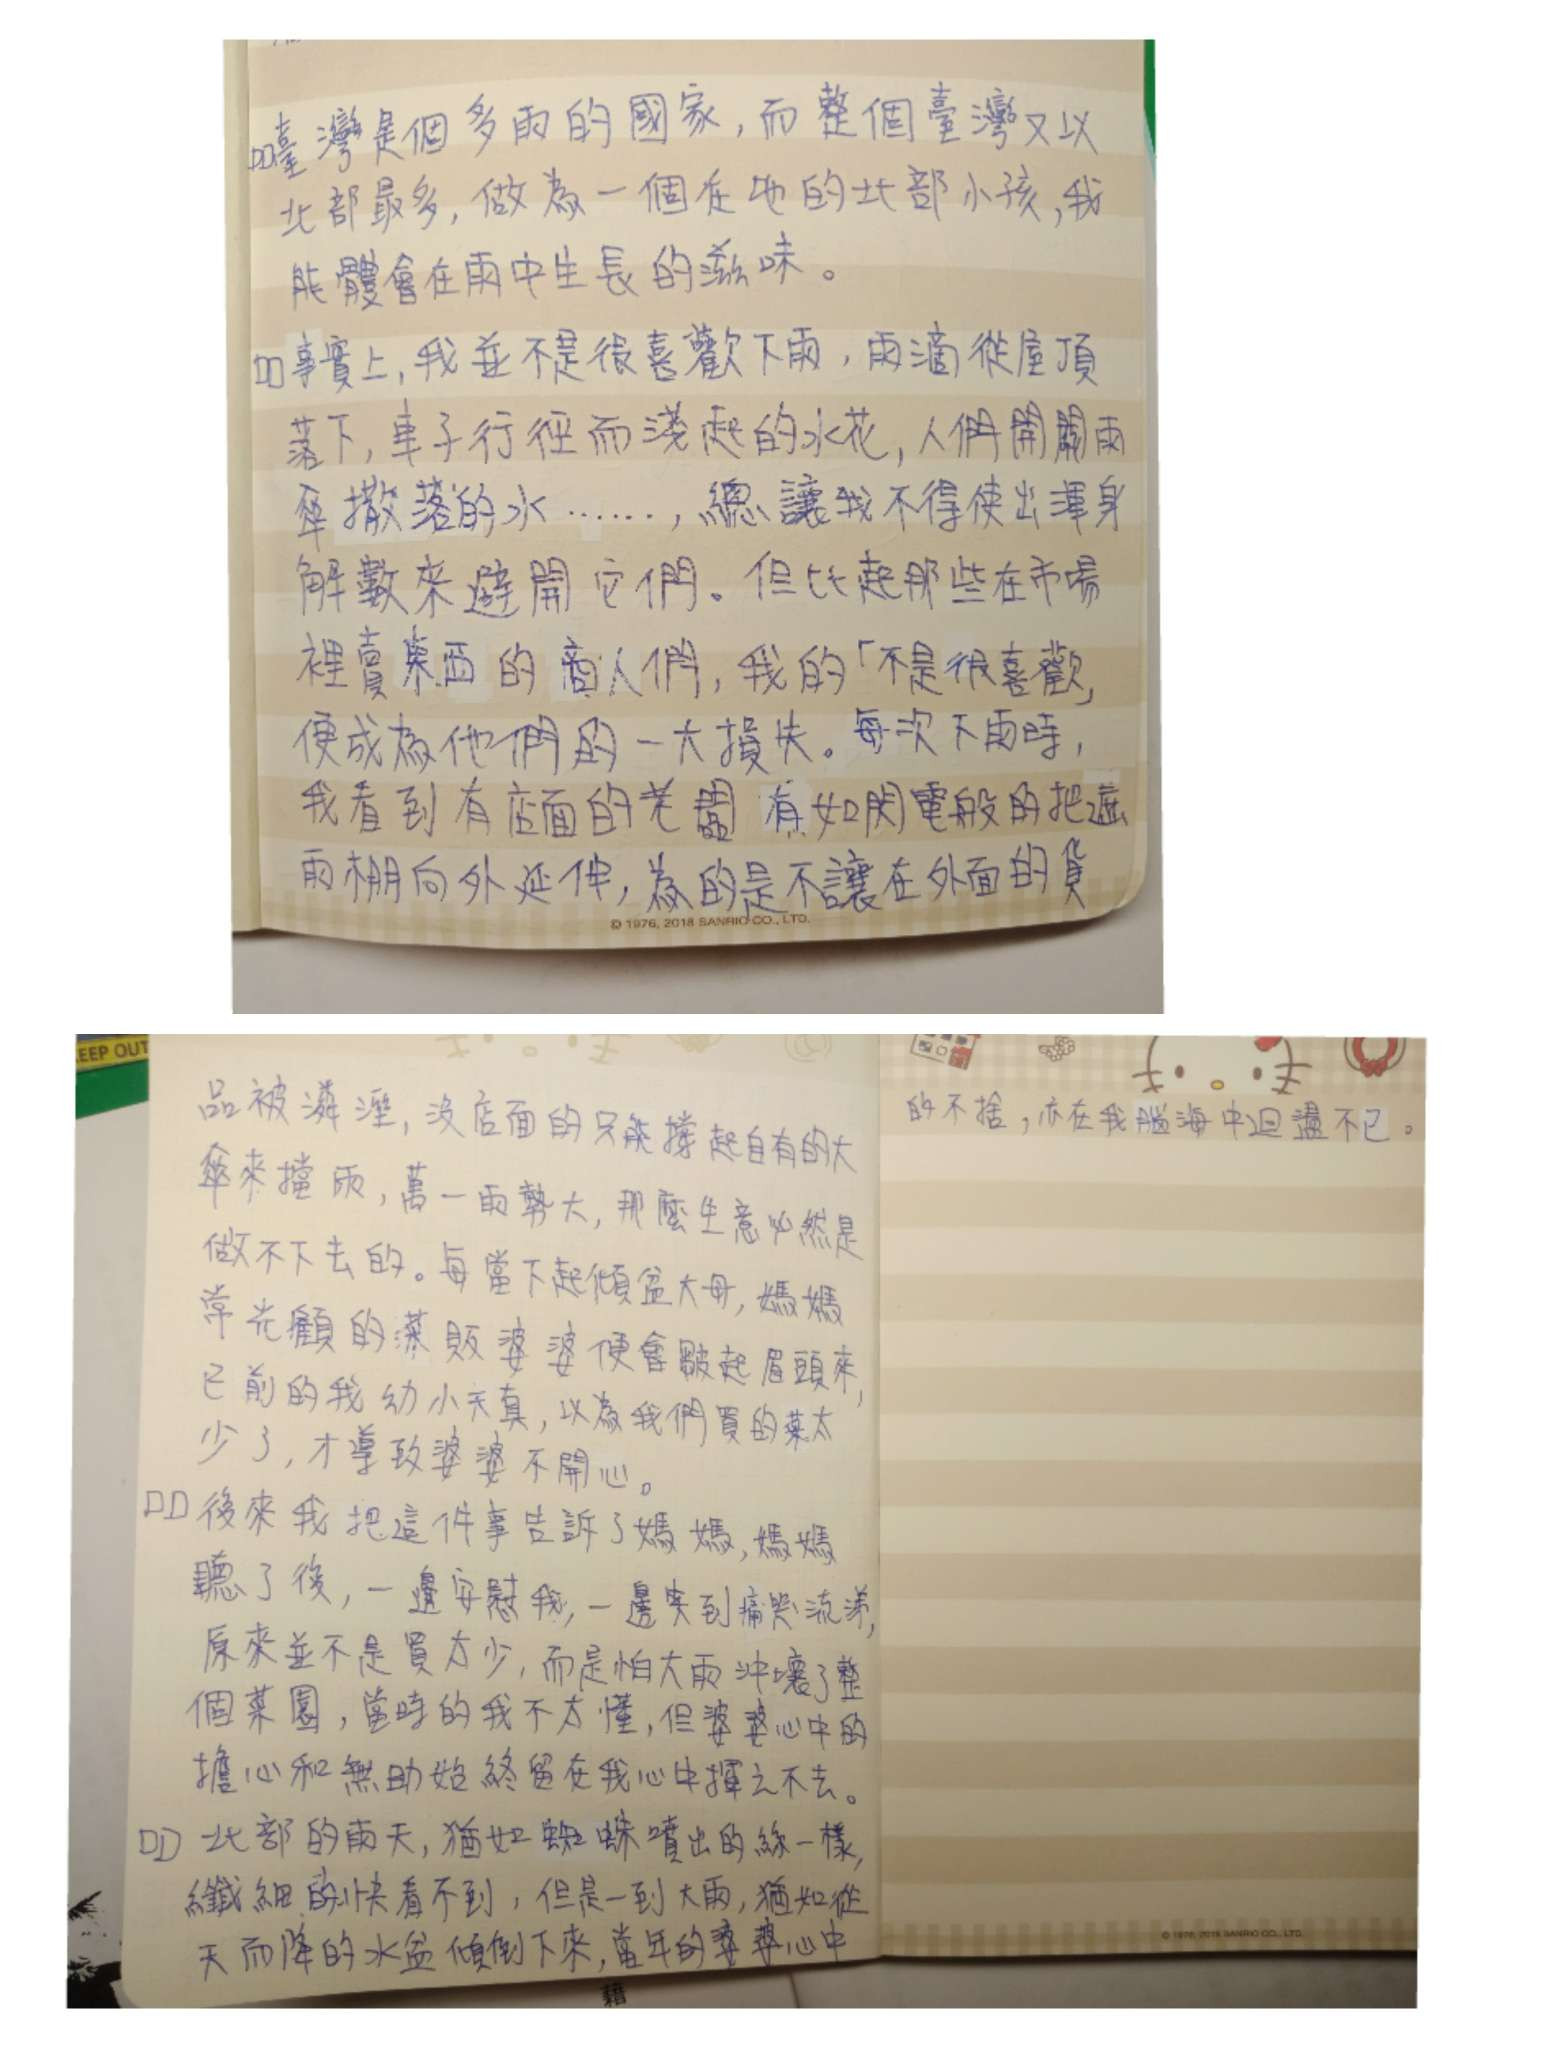 臺灣是個多雨的國家，而整個臺灣又以
北部最多，做為一個在地的北部小孩，我
能體會在雨中生長的滋味。
事實上，我並不是很喜歡下雨，雨滴從屋頂
落下，車子行徑而淺起的水花，人們開關雨
傘撒落的水……，總讓我不得使出渾身
解數來避開它們。但比起那些在市場
裡賣東西的商人們，我的「不是很喜歡」
便成為他們的一大損失。每次下雨時，
我看到有店面的老闆有如閃電般的把遮
雨棚向外延伸，為的是不讓在外面的貨
© 1976, 2018 SANRIO CO., LTD.
KEEP OUT
品被溼，沒店面的只能撐起自有的大
傘來擋雨，萬一雨勢大，那麼生意必然是
做不下去的。每當下起傾盆大母，媽媽
常光顧的菜販婆婆便會皺起眉頭來，
已前的我幼小天真，以為我們買的菜太
少了，才導致婆婆不開心。
後來我把這件事告訴了媽媽，媽媽
聽了後，一邊安慰我，一邊笑到痛哭流涕，
原來並不是買太少，而是怕大雨沖壞了整
個菜園，當時的我不太懂，但婆婆心中的
擔心和無助始終留在我心中揮之不去。
北部的雨天，猶如蜘蛛噴出的絲一樣，
纖細的快看不到，但是一到大雨，猶如從
天而降的水盆傾倒下來，當年的婆婆心中
的不捨，亦在我腦海中迴盪不已。
© 1976, 2018 SANRIO CO., LTD.
藉